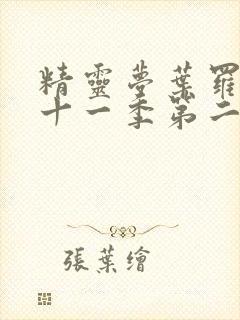 精靈夢葉羅
十一季第二
張葉繪